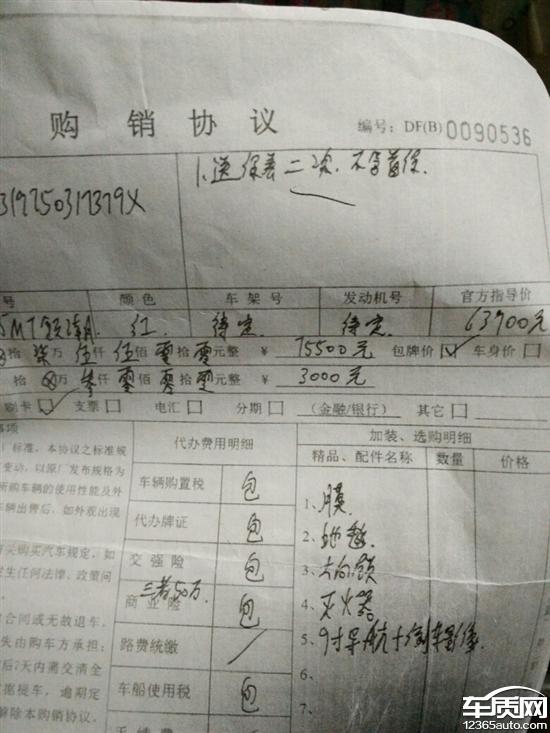 购销协议 编号：DF(B) 0090536
1.送保养二次.不含首保.
号 颜色 车架号 发动机号 官方指导价
红 待定 待定 63900元
拾柒万伍仟伍佰零拾零元整 ¥ 75500元 包牌价☑ 车身价☐
拾 万叁仟零佰零拾零元整 ¥ 3000元
刷卡☑ 支票☐ 电汇☐ 分期☐ (金融/银行) 其它☐
事项 代办费用明细 加装、选购明细
）标准，本协议之标准候
变动，以原厂发布规格为 精品、配件名称 数量 价格
所购车辆的使用性能及外 车辆购置税 包
车辆出售后，如外观出现 1、膜
代办牌证 包 2、地毯
关购买汽车规定，如
生任何法律、政策问 交强险 包 3、方向锁
三者50万
商业险 包 4、灭火器
合同或无故退车， 5、9寸导航+倒车影像
失由购车方承担； 路费统缴 /
后7天内需交清全
提车，逾期定 车船使用税 包
解除本购销协议。
手续费
车质网
12365auto.com